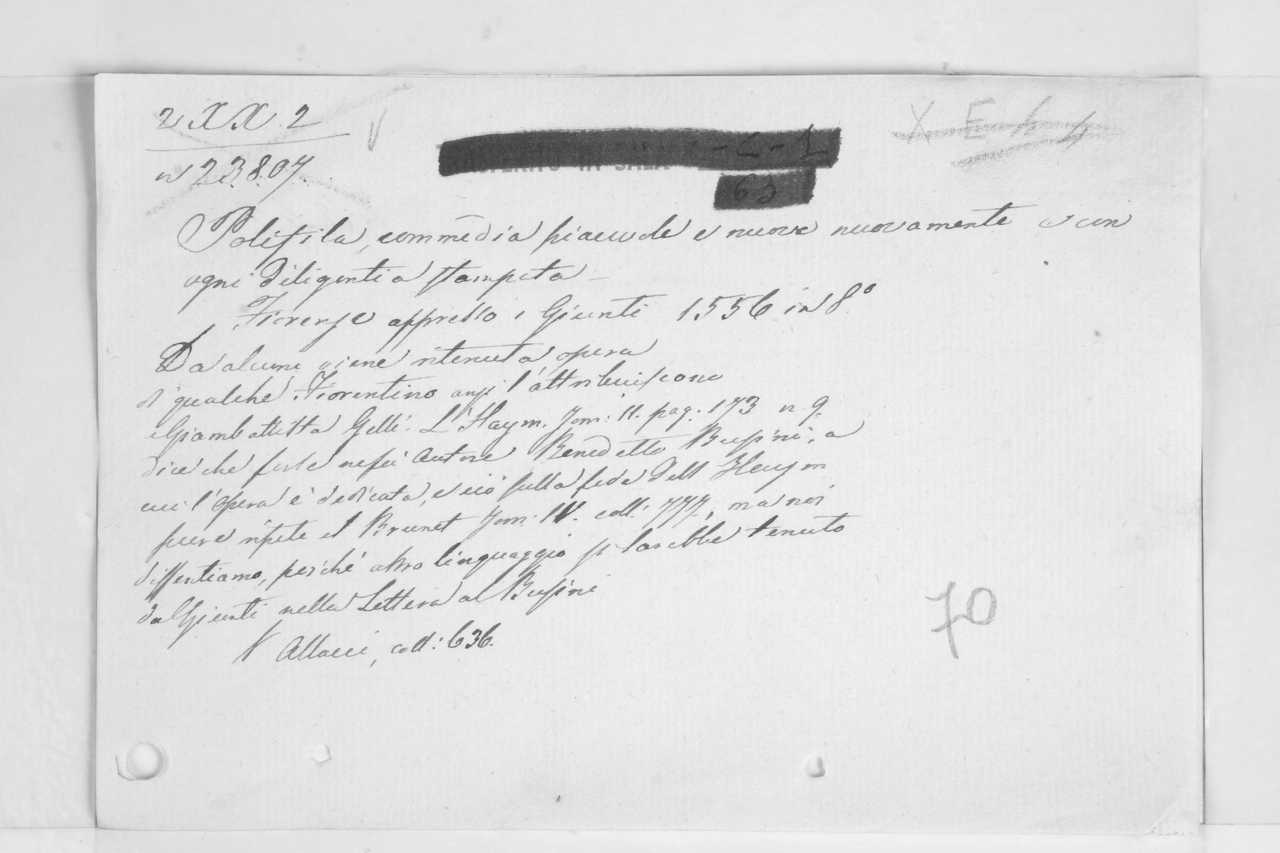 2 XX 2
n 23807
X E
63
Polifila, commedia piacevole e nuova nuovamente e con
ogni diligentia stampata
Fiorenze appresso i Giunti 1556 in 8°
Da alcuni viene ritenuta opera
di qualche Fiorentino anzi l'attribuiscono
a Giambattista Gelli. L'Haym. Tom: II. pag. 173 n 9.
dice che forse ne sei Autore Benedetto Busini, a
cui l'opera è dedicata, e ciò sulla fede dell Haym
pure ripete il Brunet Tom. IV. coll: 777, ma noi
dissentiamo, perchè altro linguaggio si sarebbe tenuto
da Giunti nella Lettera al Busini
V Allacci, coll: 636.
70